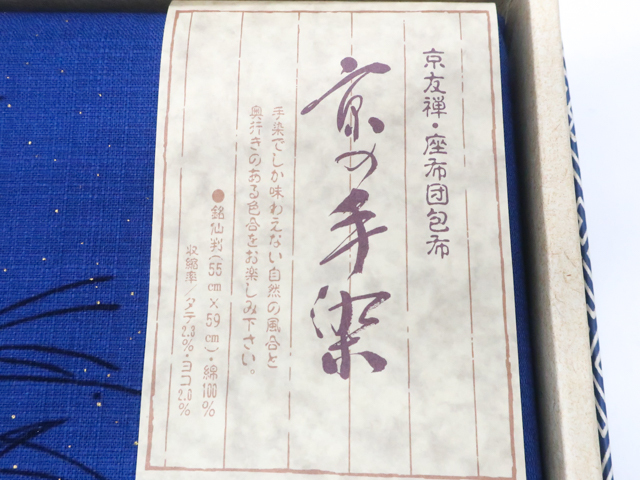 京友禅・座布団包布
京の手染
手染でしか味わえない自然の風合と
奥行きのある色合をお楽しみ下さい。
●銘仙判(55cm×59cm)・綿100%
収縮率/タテ2.3%・ヨコ2.0%